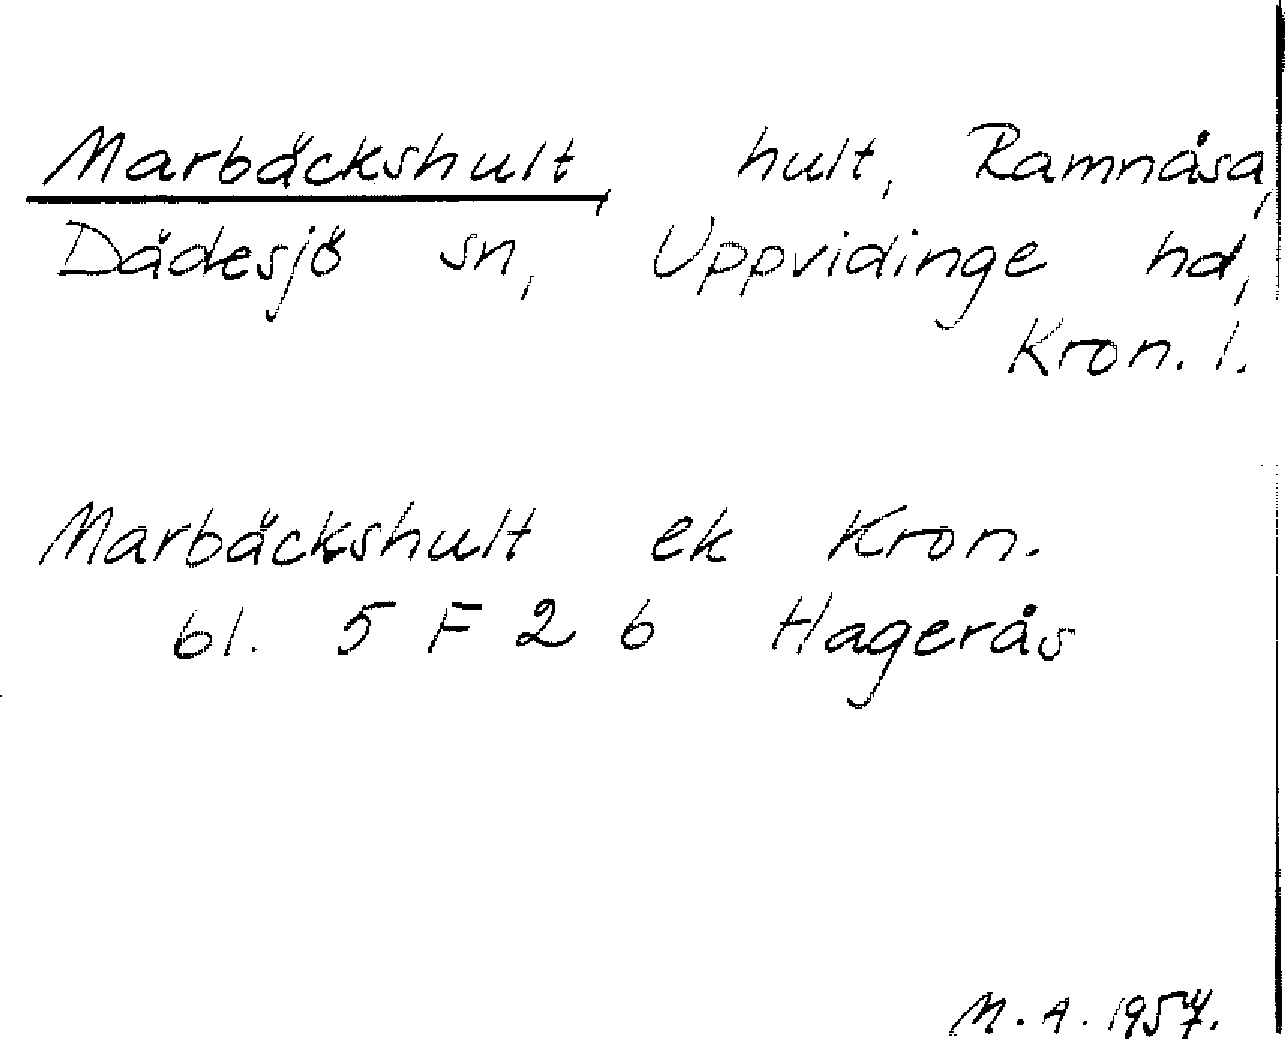 Marbäckshult, hult, Ramnåsa,
Dädesjö sn, Uppvidinge hd,
Kron. l.
Marbäckshult ek Kron.
bl. 5 F 2 b Hagerås
M. A. 1957.